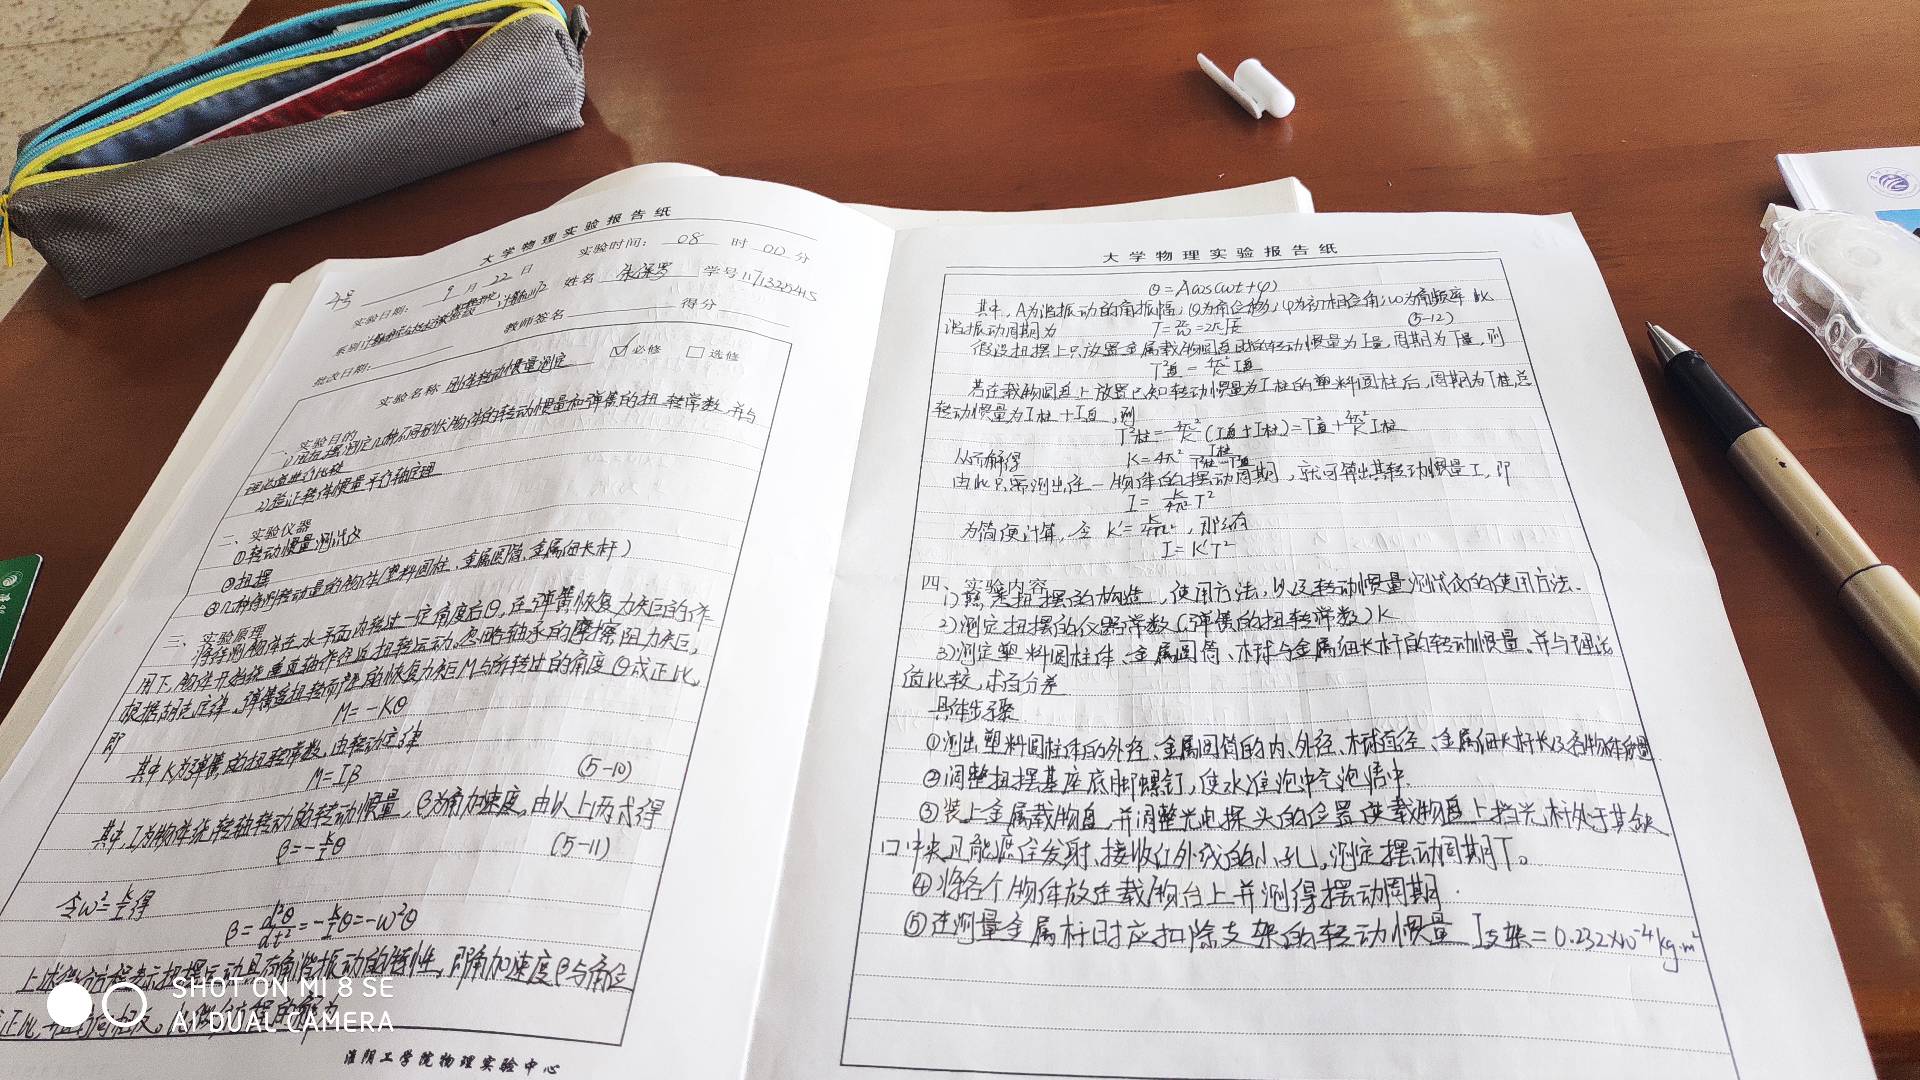 大学物理实验报告纸
实验日期: 9月22日 实验时间: 08时00分
系别 姓名 学号 1171325415
批改日期: 教师签名 得分
实验名称 刚体转动惯量测定 ☑必修 □选修
一、实验目的
1)用扭摆测定几种不同形状物体的转动惯量和弹簧的扭转常数,并与
理论值进行比较
2)验证转动惯量平行轴定理
二、实验仪器
①转动惯量测试仪
②扭摆
③几种待测转动量的物体(塑料圆柱、金属圆筒、金属细长杆)
三、实验原理
将待测物体在水平面内转过一定角度后θ,在弹簧恢复力矩的作
用下,物体开始绕垂直轴作往返扭转运动。忽略轴承的摩擦阻力矩,
根据胡克定律,弹簧受扭转而产生的恢复力矩M与所转过的角度θ成正比,
即 M=-Kθ
其中K为弹簧的扭转常数,由转动定律
M=Iβ (5-10)
其中,I为物体绕转轴转动的转动惯量,β为角加速度。由以上两式得
β=-K/I θ (5-11)
令ω²=K/I得
β=d²θ/dt²=-K/I θ=-ω²θ
上述微分方程表示扭摆运动具有角谐振动的特性,即角加速度β与角位
正比,并且方向相反。
淮阴工学院物理实验中心
大学物理实验报告纸
θ=Acos(ωt+φ)
其中,A为谐振动的角振幅,θ为角位移,φ为初相位角,ω为角频率 此
谐振动周期为 T=2π/ω=2π√I/K (5-12)
假设扭摆上只放置金属载物圆盘时的转动惯量为I盘,周期为T盘,则
T²盘=4π²/K I盘
若在载物圆盘上放置已知转动惯量为I柱的塑料圆柱后,周期为T柱,总
转动惯量为I柱+I盘,则
T²柱=4π²/K(I盘+I柱)=T²盘+4π²/K I柱
从而解得 K=4π² I柱/T²柱-T²盘
由此只需测出任一物体的摆动周期,就可算出其转动惯量I,即
I=K/4π² T²
为简便计算,令 K'=K/4π²,那么有
I=K'T²
四、实验内容
1)熟悉扭摆的构造、使用方法,以及转动惯量测试仪的使用方法.
2)测定扭摆的仪器常数(弹簧的扭转常数)K
3)测定塑料圆柱体、金属圆筒、木球与金属细长杆的转动惯量、并与理论
值比较,求百分差
具体步骤
①测出塑料圆柱体的外径、金属圆筒的内、外径、木球直径、金属细长杆长及各物体质量
②调整扭摆基座底脚螺钉,使水准泡中气泡居中.
③装上金属载物盘,并调整光电探头的位置使载物盘上挡光杆处于其缺
口中央且能遮住发射、接收红外线的小孔,测定摆动周期T。
④将各个物体放在载物台上并测得摆动周期.
⑤在测量金属杆时应扣除支架的转动惯量 I支架=0.232×10⁻⁴kg·m²
SHOT ON MI 8 SE
AI DUAL CAMERA